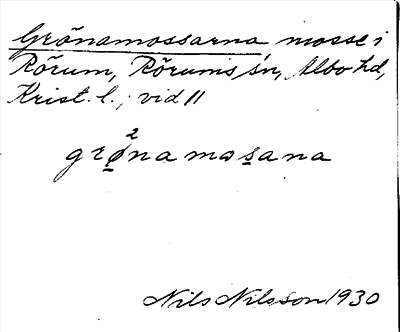 Grönamossarna mosse i
Rörum, Rörums sn, Albo hd,
Krist. l.; vid 11
grø̠²namos̠ana
Nils Nilsson 1930